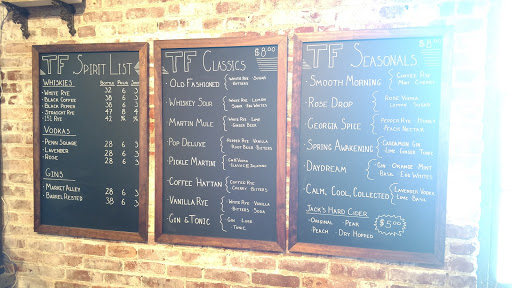 TF SPIRIT LIST
WHISKIES
BOTTLE POUR
· WHITE RYE 32 6 3
· BLACK COFFEE 38 6 3
· BLACK PEPPER 38 6 3
· STRAIGHT RYE 47 8 4
· 151 RYE 42
VODKAS
· PENN SQUARE 28 6 3
· LAVENDER 28 6 3
· ROSE 28 6 3
GINS
· MARKET ALLEY 28 6 3
· BARREL RESTED 38 6 3
TF CLASSICS $8.00
· OLD FASHIONED WHITE RYE · SUGAR
BITTERS
· WHISKEY SOUR WHITE RYE · LEMON
SUGAR · EGG WHITES
· MARTIN MULE WHITE RYE · LIME
GINGER BEER
· POP DELUXE PEPPER RYE · VANILLA
ROOT BEER · BITTERS
· PICKLE MARTINI
· COFFEE HATTAN COFFEE RYE
CHERRY · BITTERS
· VANILLA RYE WHITE RYE · VANILLA
BITTERS · SODA
· GIN & TONIC GIN · LIME
TONIC
TF SEASONALS $8.00
· SMOOTH MORNING COFFEE RYE
MINT
· ROSE DROP ROSE VODKA
LEMON · SUGAR
· GEORGIA SPICE PEPPER RYE · HONEY
PEACH NECTAR
· SPRING AWAKENING CARDAMOM GIN
LIME · GINGER · TONIC
· DAYDREAM GIN · ORANGE · MINT
BASIL · EGG WHITES
· CALM, COOL, COLLECTED LAVENDER VODKA
LIME · BASIL
JACK'S HARD CIDER
· ORIGINAL · PEAR
· PEACH · DRY HOPPED
$5.00